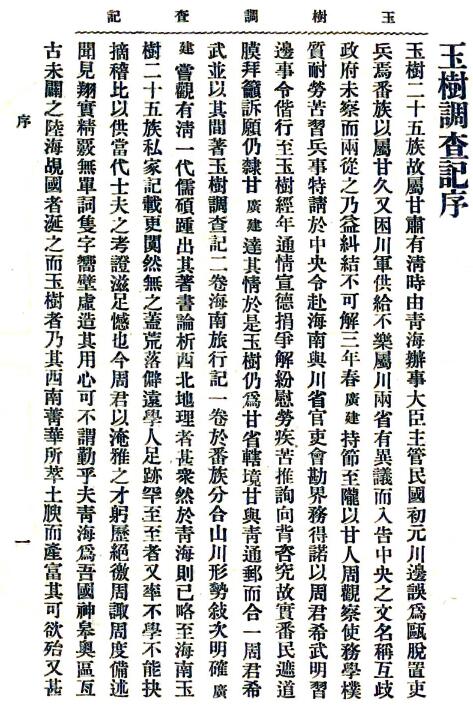 玉樹調查記
玉樹調查記序
玉樹二十五族故屬甘肅有淸時由靑海辦事大臣主管民國初元川邊誤爲甌脫置吏
兵焉番族以屬甘久又困川軍供給不樂屬川兩省有異議而入告中央之文名稱互歧
政府未察而兩從之乃益糾結不可解三年春廣建持節至隴以甘人周觀察使務學樸
質耐勞苦習兵事特請於中央令赴海南與川省官吏會勘界務得諾以周君希武明習
邊事令偕行至玉樹經年通情宣德捐爭解紛慰勞疾苦推詢向背咨究故實番民遮道
膜拜籲訴願仍隸甘廣建達其情於是玉樹仍爲甘省轄境甘與靑通郵而合一周君希
武並以其間著玉樹調查記二卷海南旅行記一卷於番族分合山川形勢敍次明確廣
建嘗觀有淸一代儒碩踵出其著書論析西北地理者甚衆然於靑海則已略至海南玉
樹二十五族私家記載更闃然無之蓋荒落僻遠學人足跡罕至至者又率不學不能抉
摘稽比以供當代士夫之考證滋足憾也今周君以淹雅之才躬歷絕徼周諏周度備述
聞見翔實精覈無單詞隻字嚮壁虛造其用心可不謂勤乎夫靑海爲吾國神皋奧區亙
古未闢之陸海覘國者涎之而玉樹者乃其西南菁華所萃土腴而產富其可欲殆又甚
序
一